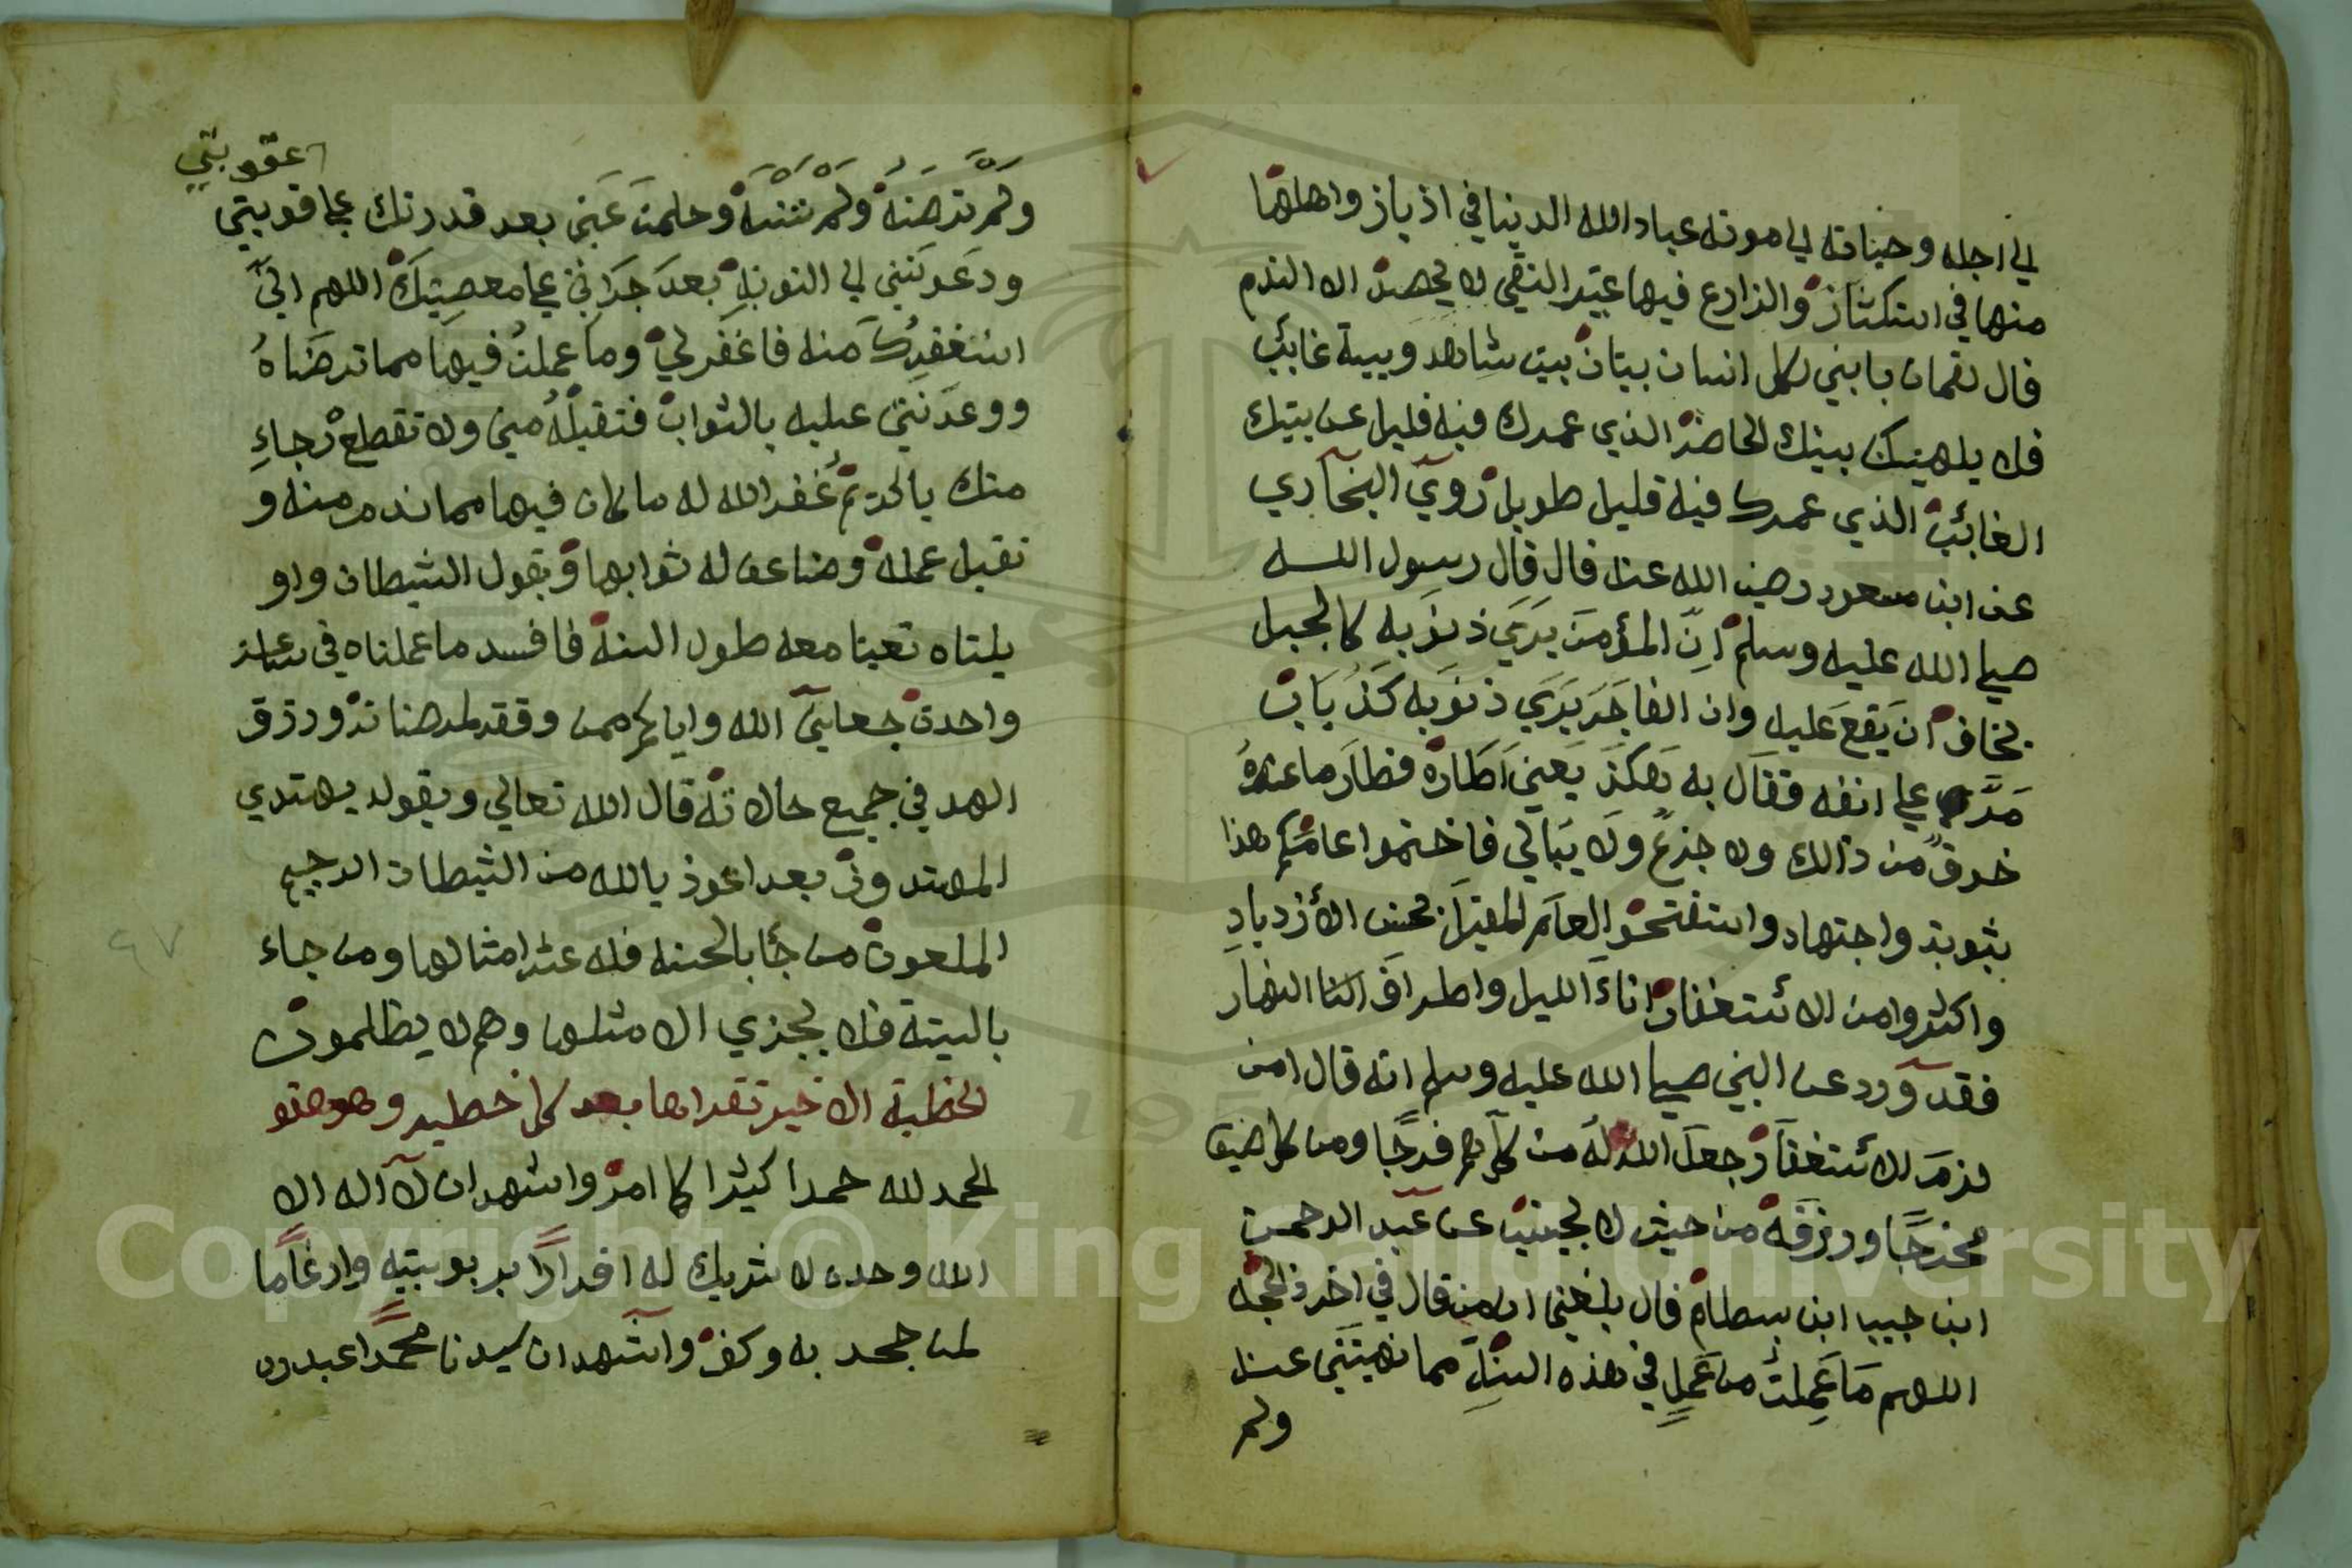 الي اجله وحياته الي موته عباد الله الدينا في ادباز واهلها
منها في استكثار والزارع فيها غير التقي لا يحصد الا الندم
قال لقمان يا بني لكل انسان بيتان بيت شاهد وبيت غائب
فلا يلهينك بيتك الحاضر الذي عمرك فيه قليل عن بيتك
الغائب الذي عمرك فيه قليل طويل روي البخاري
عن ابن مسعود رضي الله عنه قال قال رسول الله
صلي الله عليه وسلم ان المؤمن يري ذنوبه كالجبل
يخاف ان يقع عليه وان الفاجر يري ذنوبه كذباب
مر علي انفه فقال به هكذ يعني اطاره فطار ما عنده
خوف من ذالك ولا جزع ولا يبالي فاختموا عامكم هذا
بثوبة واجتهاد واستفتحو العام المقبل بحسن الازدياد
واكثروا من الائستغفار اناء الليل واطراف النهار
فقد ورد عن النبي صلي الله عليه وسلم انه قال امن
لزم الائستغفار جعل الله له من كل هم فرجا ومن كل ضيق
مخرجا ورزقه من حيث لا يحتسب عن عبد الرحمن
ابن حبيب ابن بسطام قال بلغني ان من قال في اخر ذالحجه
اللهم ما عملت من عمل في هذه السنة مما نهيتني عنه
ولم
عقوبتي
ولم ترضه ولم تنسه وحلمت عني بعد قدرتك علي
ودعوتني الي التوبة بعد جراتي علي معصيتك اللهم اني
استغفرك منه فاغفر لي وما عملت فيها مما ترضاه
ووعدتني عليه بالثواب فتقبله مني ولا تقطع رجاء
منك يا كريم غفر الله له ما كان فيها مما ندم منه و
تقبل عمله وضاعف له ثوابها ويقول الشيطان واو
يلتاه تعبنا معه طول السنة فافسد ما عملناه في ساعة
واحدة جعلني الله واياكم ممن وفقه لمرضاته ورزق
الهد في جميع حالاته قال الله تعالي وبقوله يهتدي
المهتدون بعد اعوذ بالله من الشيطان الرجيم
الملعون من جاء بالحسنه فله عشر امثالها ومن جاء
بالسيئة فلا يجزي الا مثلها وهم لا يظلمون
لخطبة الاخير تقراها بعد كل خطبه وهو هذو
الحمد لله حمدا كثيرا كما امر واشهد ان لا اله الا
الله وحده لا شريك له اقرارا بربوبيته وارغاما
لمن جحد به وكفر واشهد ان سيدنا محمدا عبده